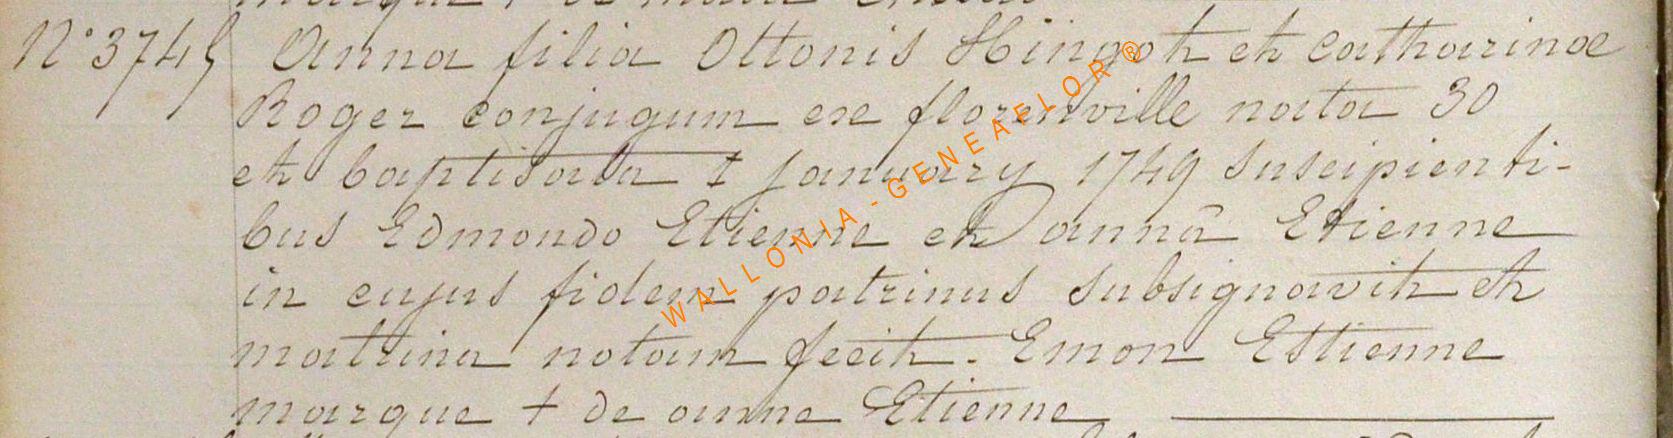 N° 3745 Anna filia Ottonis Hingot et Catharinae
Roger conjugum ex florenville nata 30
et baptisata 1 january 1749 suscipienti-
bus Edmondo Etienne et annâ Etienne
in cujus fidem patrinus subsignavit et
matrina notam fecit. Emon Estienne
marque + de anne Etienne
WALLONIA - GENEAFLOR ®